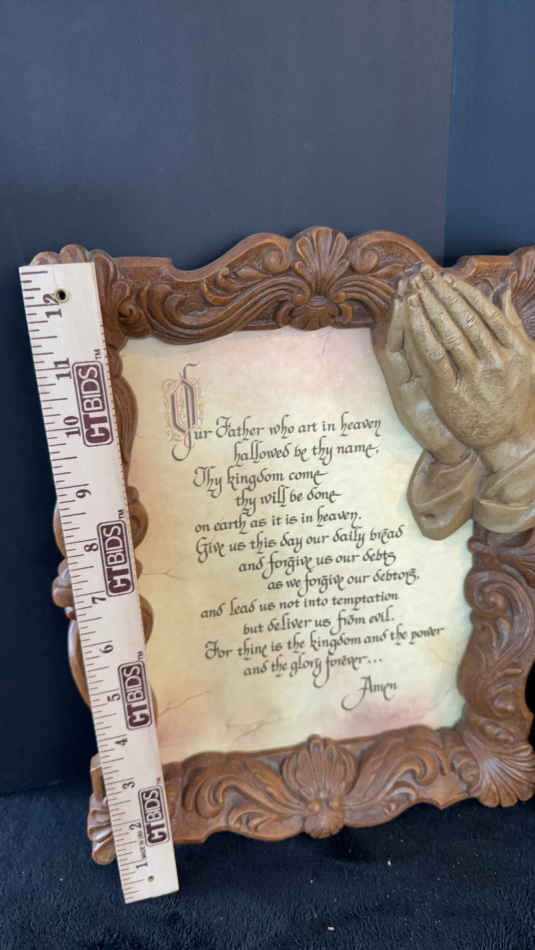 Our Father who art in heaven
hallowed be thy name.
Thy kingdom come
thy will be done
on earth as it is in heaven.
Give us this day our daily bread
and forgive us our debts
as we forgive our debtors,
and lead us not into temptation
but deliver us from evil.
For thine is the kingdom and the power
and the glory forever...
Amen
12
11
CTBIDS™
10
9
8
CTBIDS™
7
6
5
CTBIDS™
4
3
2
CTBIDS™
1